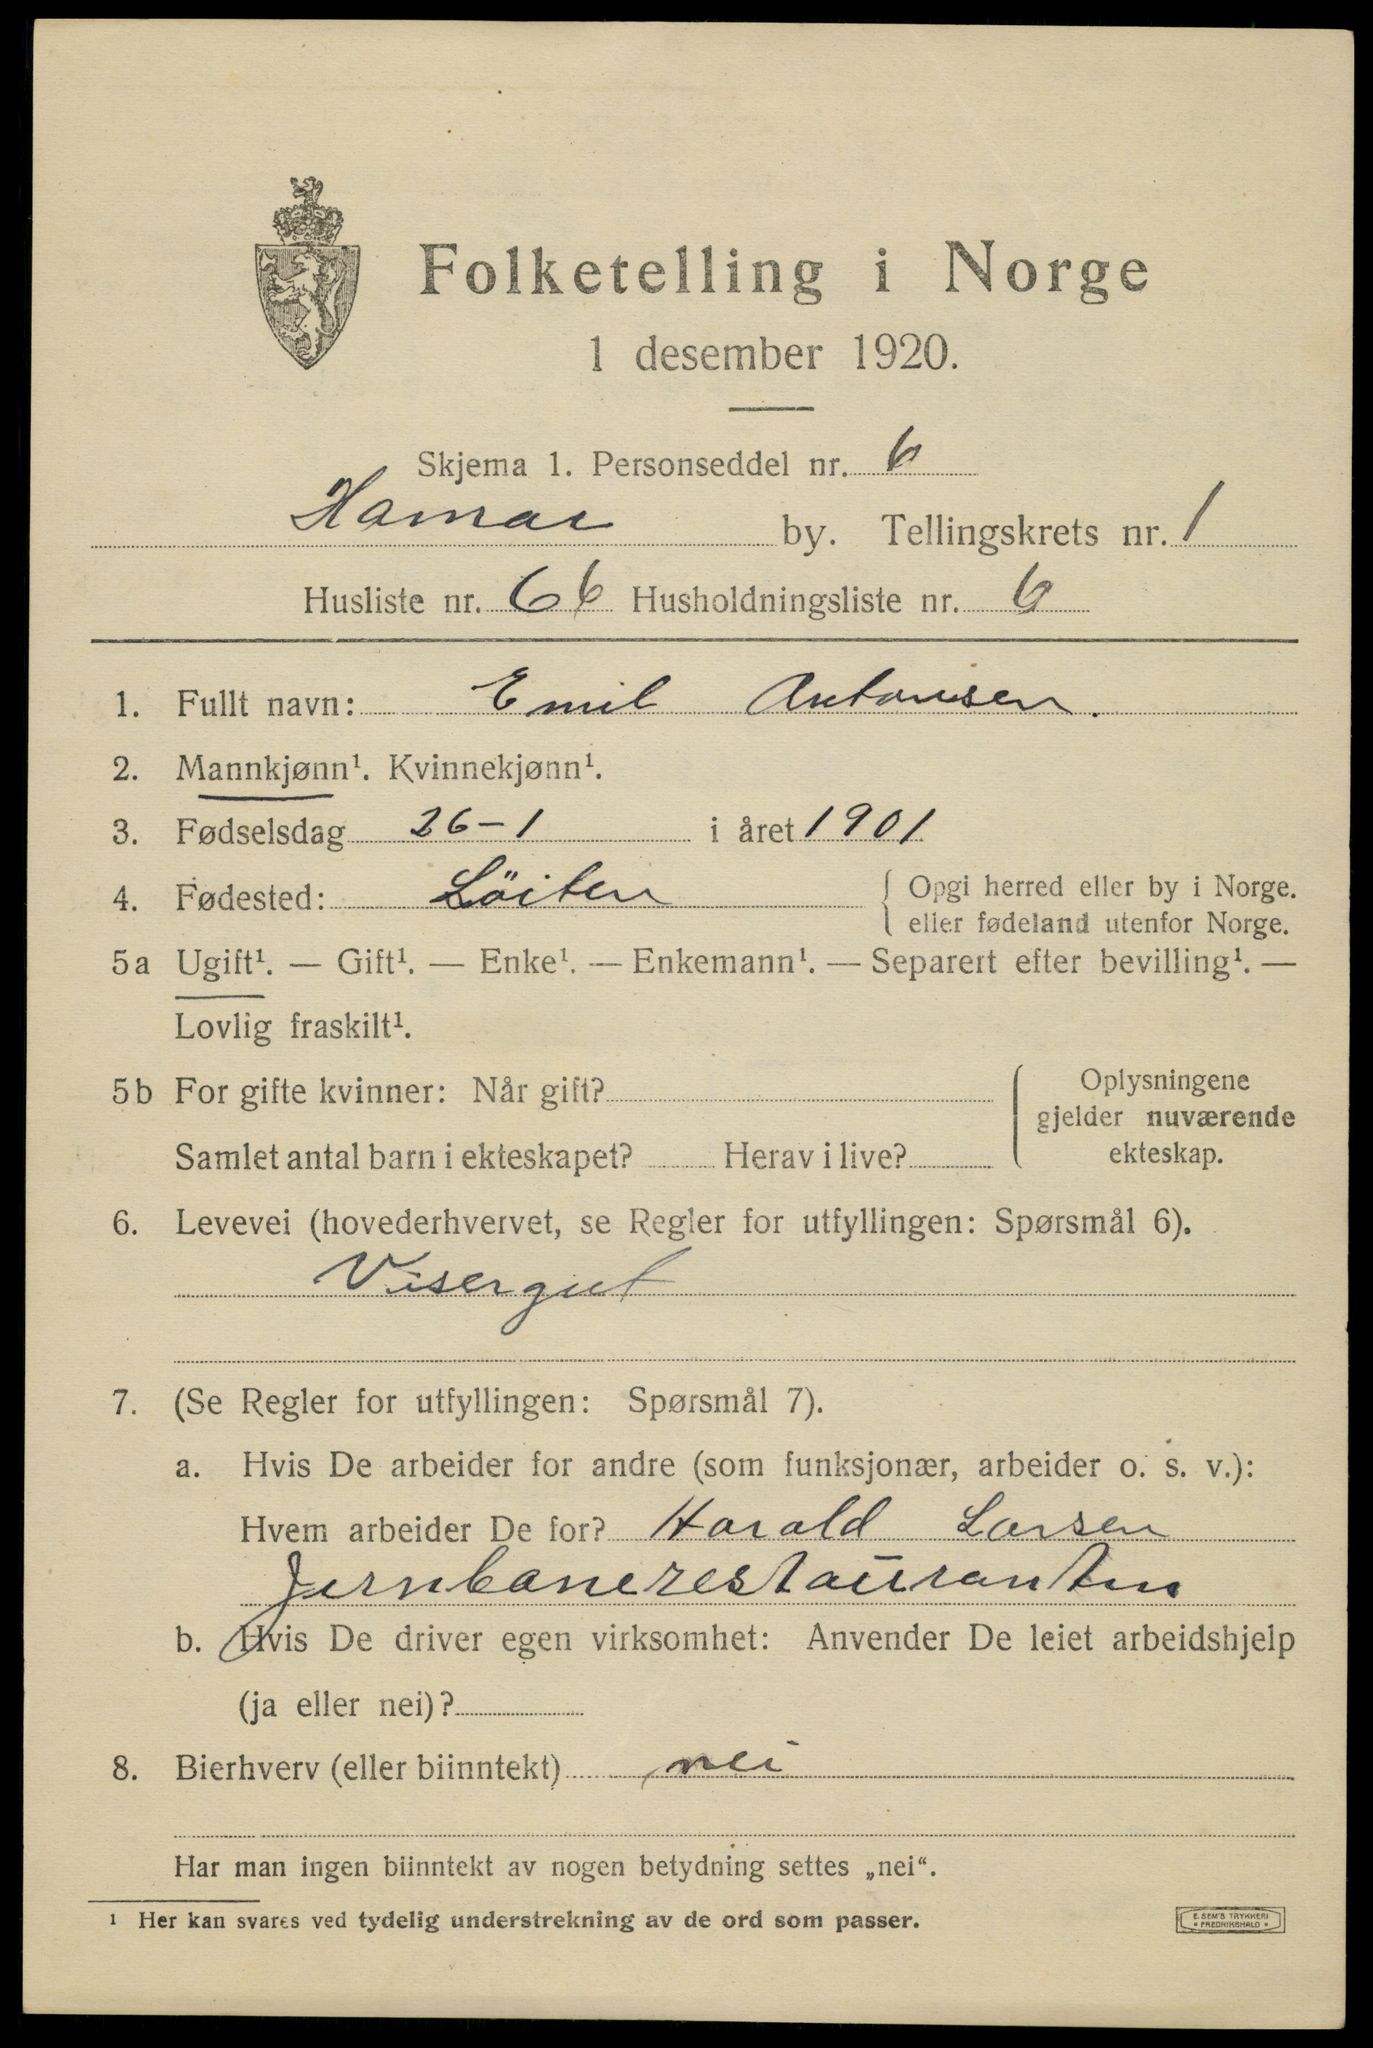 Folketelling i Norge
1 desember 1920.
Skjema 1. Personseddel nr. 6
Hamar by. Tellingskrets nr. 1
Husliste nr. 66 Husholdningsliste nr. 6
1. Fullt navn: Emil Antonsen.
2. Mannkjønn¹. Kvinnekjønn¹.
3. Fødselsdag 26-1 i året 1901
4. Fødested: Löiten { Opgi herred eller by i Norge.
eller fødeland utenfor Norge.
5a Ugift¹. — Gift¹. — Enke¹. — Enkemann¹. — Separert efter bevilling¹. —
Lovlig fraskilt¹.
5b For gifte kvinner: Når gift?
Samlet antal barn i ekteskapet? Herav i live?
Oplysningene
gjelder nuværende
ekteskap.
6. Levevei (hovederhvervet, se Regler for utfyllingen: Spørsmål 6).
Visergut
7. (Se Regler for utfyllingen: Spørsmål 7).
a. Hvis De arbeider for andre (som funksjonær, arbeider o. s. v.):
Hvem arbeider De for? Harald Larsen
Jernbanerestauranten
b. Hvis De driver egen virksomhet: Anvender De leiet arbeidshjelp
(ja eller nei)?
8. Bierhverv (eller biinntekt) nei
Har man ingen biinntekt av nogen betydning settes „nei“.
¹ Her kan svares ved tydelig understrekning av de ord som passer.
E. SEM'S TRYKKERI
• FREDRIKSHALD •